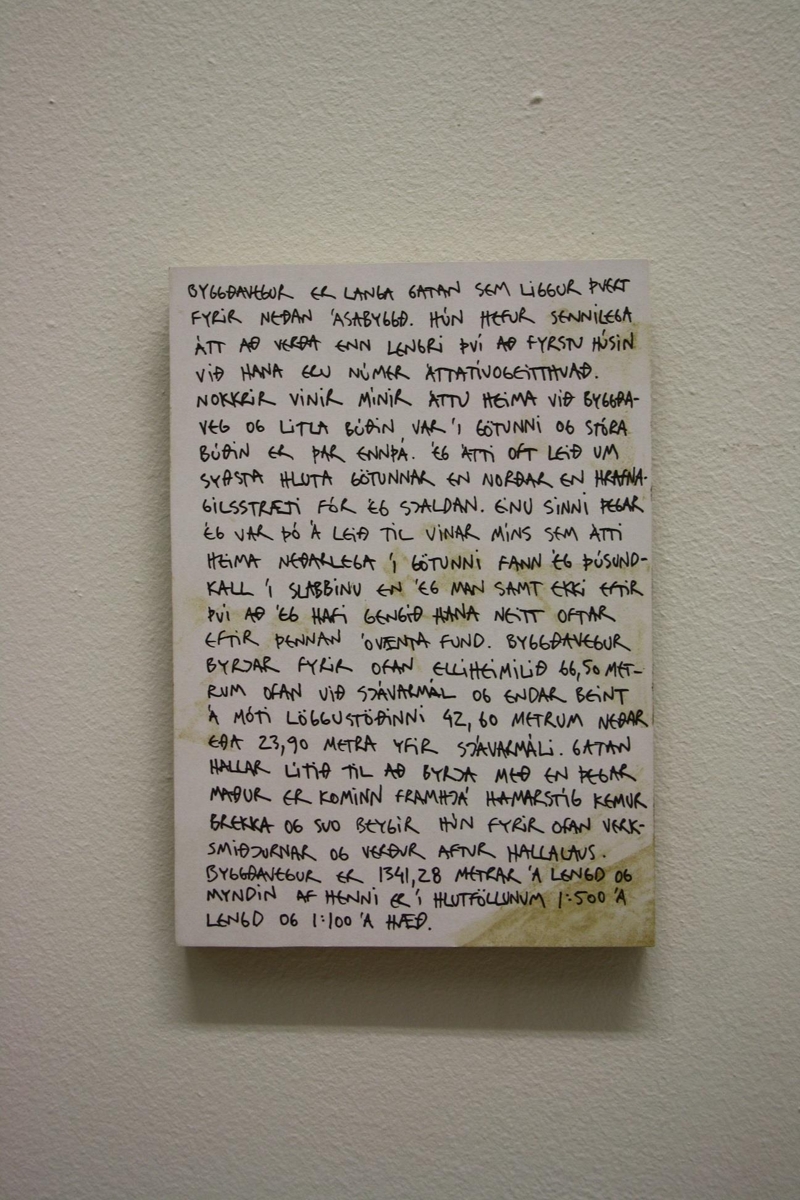 BYGGÐAVEGUR ER LANGA GATAN SEM LIGGUR ÞVERT
FYRIR NEÐAN ÁSABYGGÐ. HÚN HEFUR SENNILEGA
ÁTT AÐ VERÐA ENN LENGRI ÞVÍ AÐ FYRSTU HÚSIN
VIÐ HANA ERU NÚMER ÁTTATÍUOGEITTHVAÐ.
NOKKRIR VINIR MÍNIR ÁTTU HEIMA VIÐ BYGGÐA-
VEG OG LITLA BÚÐIN VAR Í GÖTUNNI OG STÓRA
BÚÐIN ER ÞAR ENNÞÁ. ÉG ÁTTI OFT LEIÐ UM
SYÐSTA HLUTA GÖTUNNAR EN NORÐAR EN HRAFNA-
GILSSTRÆTI FÓR ÉG SJALDAN. EINU SINNI ÞEGAR
ÉG VAR ÞÓ Á LEIÐ TIL VINAR MÍNS SEM ÁTTI
HEIMA NEÐARLEGA Í GÖTUNNI FANN ÉG ÞÚSUND-
KALL Í SLABBINU EN ÉG MAN SAMT EKKI EFTIR
ÞVÍ AÐ ÉG HAFI GENGIÐ HANA NEITT OFTAR
EFTIR ÞENNAN ÓVÆNTA FUND. BYGGÐAVEGUR
BYRJAR FYRIR OFAN ELLIHEIMILIÐ 66,50 MET-
RUM OFAN VIÐ SJÁVARMÁL OG ENDAR BEINT
Á MÓTI LÖGGUSTÖÐINNI 42,60 METRUM NEÐAR
EÐA 23,90 METRA YFIR SJÁVARMÁLI. GATAN
HALLAR LÍTIÐ TIL AÐ BYRJA MEÐ EN ÞEGAR
MAÐUR ER KOMINN FRAMHJÁ HAMARSTÍG KEMUR
BREKKA OG SVO BEYGIR HÚN FYRIR OFAN VERK-
SMIÐJURNAR OG VERÐUR AFTUR HALLALAUS.
BYGGÐAVEGUR ER 1341,28 METRAR Á LENGD OG
MYNDIN AF HENNI ER Í HLUTFÖLLUNUM 1:500 Á
LENGD OG 1:100 Á HÆÐ.